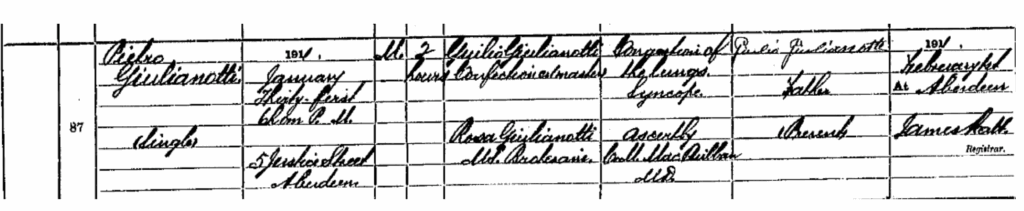 87
Pietro
Giulianotti
(Single)
1911.
January
Thirty-first
6h 0m P.M.
5 Justice Street
Aberdeen
M.
2
hours
Guilio Giulianotti
Confectioner master
Rosa Giulianotti
M.S.
Congestion of
the lungs.
Syncope.
As cert by
M.D.
Giulio Giulianotti
Father
(Present)
1911.
February 1st
At Aberdeen
James
Registrar.